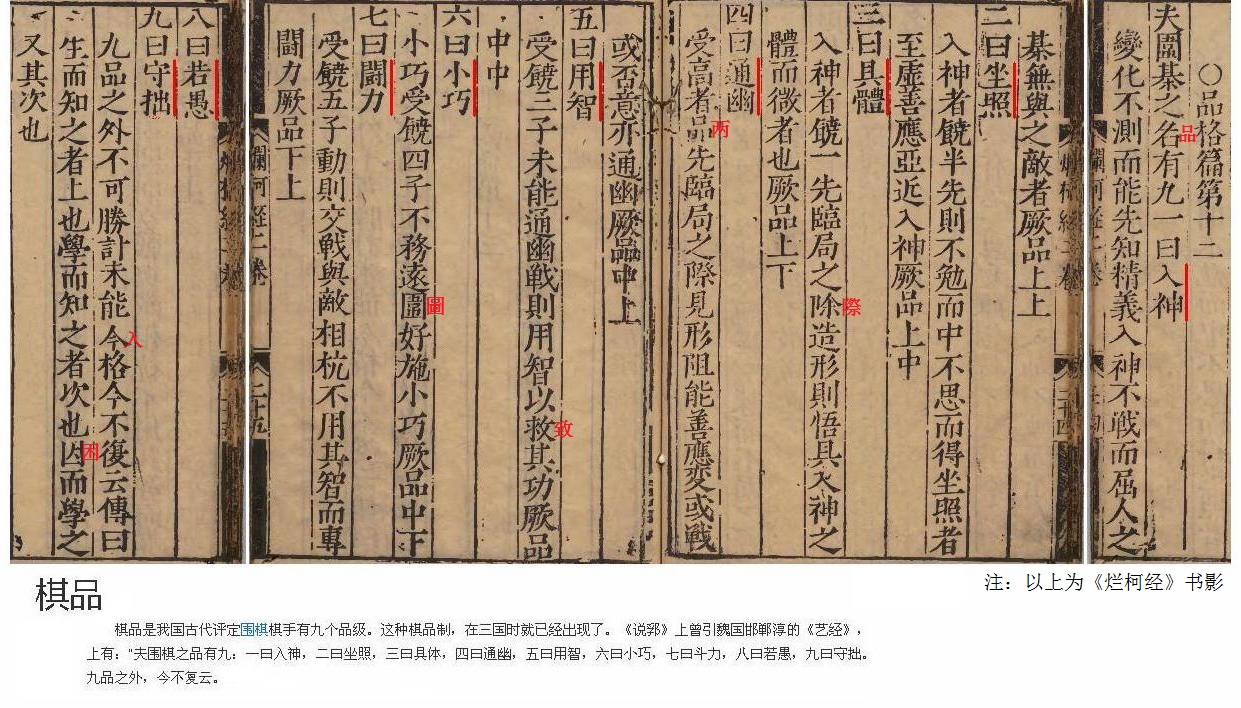 ○品格篇第十二
夫圍棊之名有九一曰入神
品
變化不測而能先知精義入神不戰而屈人之
棊無與之敵者厥品上上
二曰坐照
入神者饒半先則不勉而中不思而得坐照者
至虛善應亞近入神厥品上中
三曰具體
入神者饒一先臨局之除造形則悟具入神之
際
體而微者也厥品上下
四曰通幽
受高者品先臨局之際見形阻能善應变或戰
两
或否意亦通幽厥品中上
五曰用智
受饒三子未能通幽戰則用智以救其功厥品
致
中中
六曰小巧
小巧受饒四子不務遠圗好施小巧厥品中下
圖
七曰鬪力
受饒五子動則交戰與敵相杭不用其智而專
鬪力厥品下上
爛柯經二卷
二十五
八曰若愚
九曰守拙
九品之外不可勝計未能今格今不復云傳曰
入
生而知之者上也學而知之者次也因而學之
困
又其次也
注：以上为《烂柯经》书影
棋品
棋品是我国古代评定围棋棋手有九个品级。这种棋品制，在三国时就已经出现了。《说郛》上曾引魏国邯郸淳的《艺经》，
上有："夫围棋之品有九：一曰入神，二曰坐照，三曰具体，四曰通幽，五曰用智，六曰小巧，七曰斗力，八曰若愚，九曰守拙。
九品之外，今不复云。